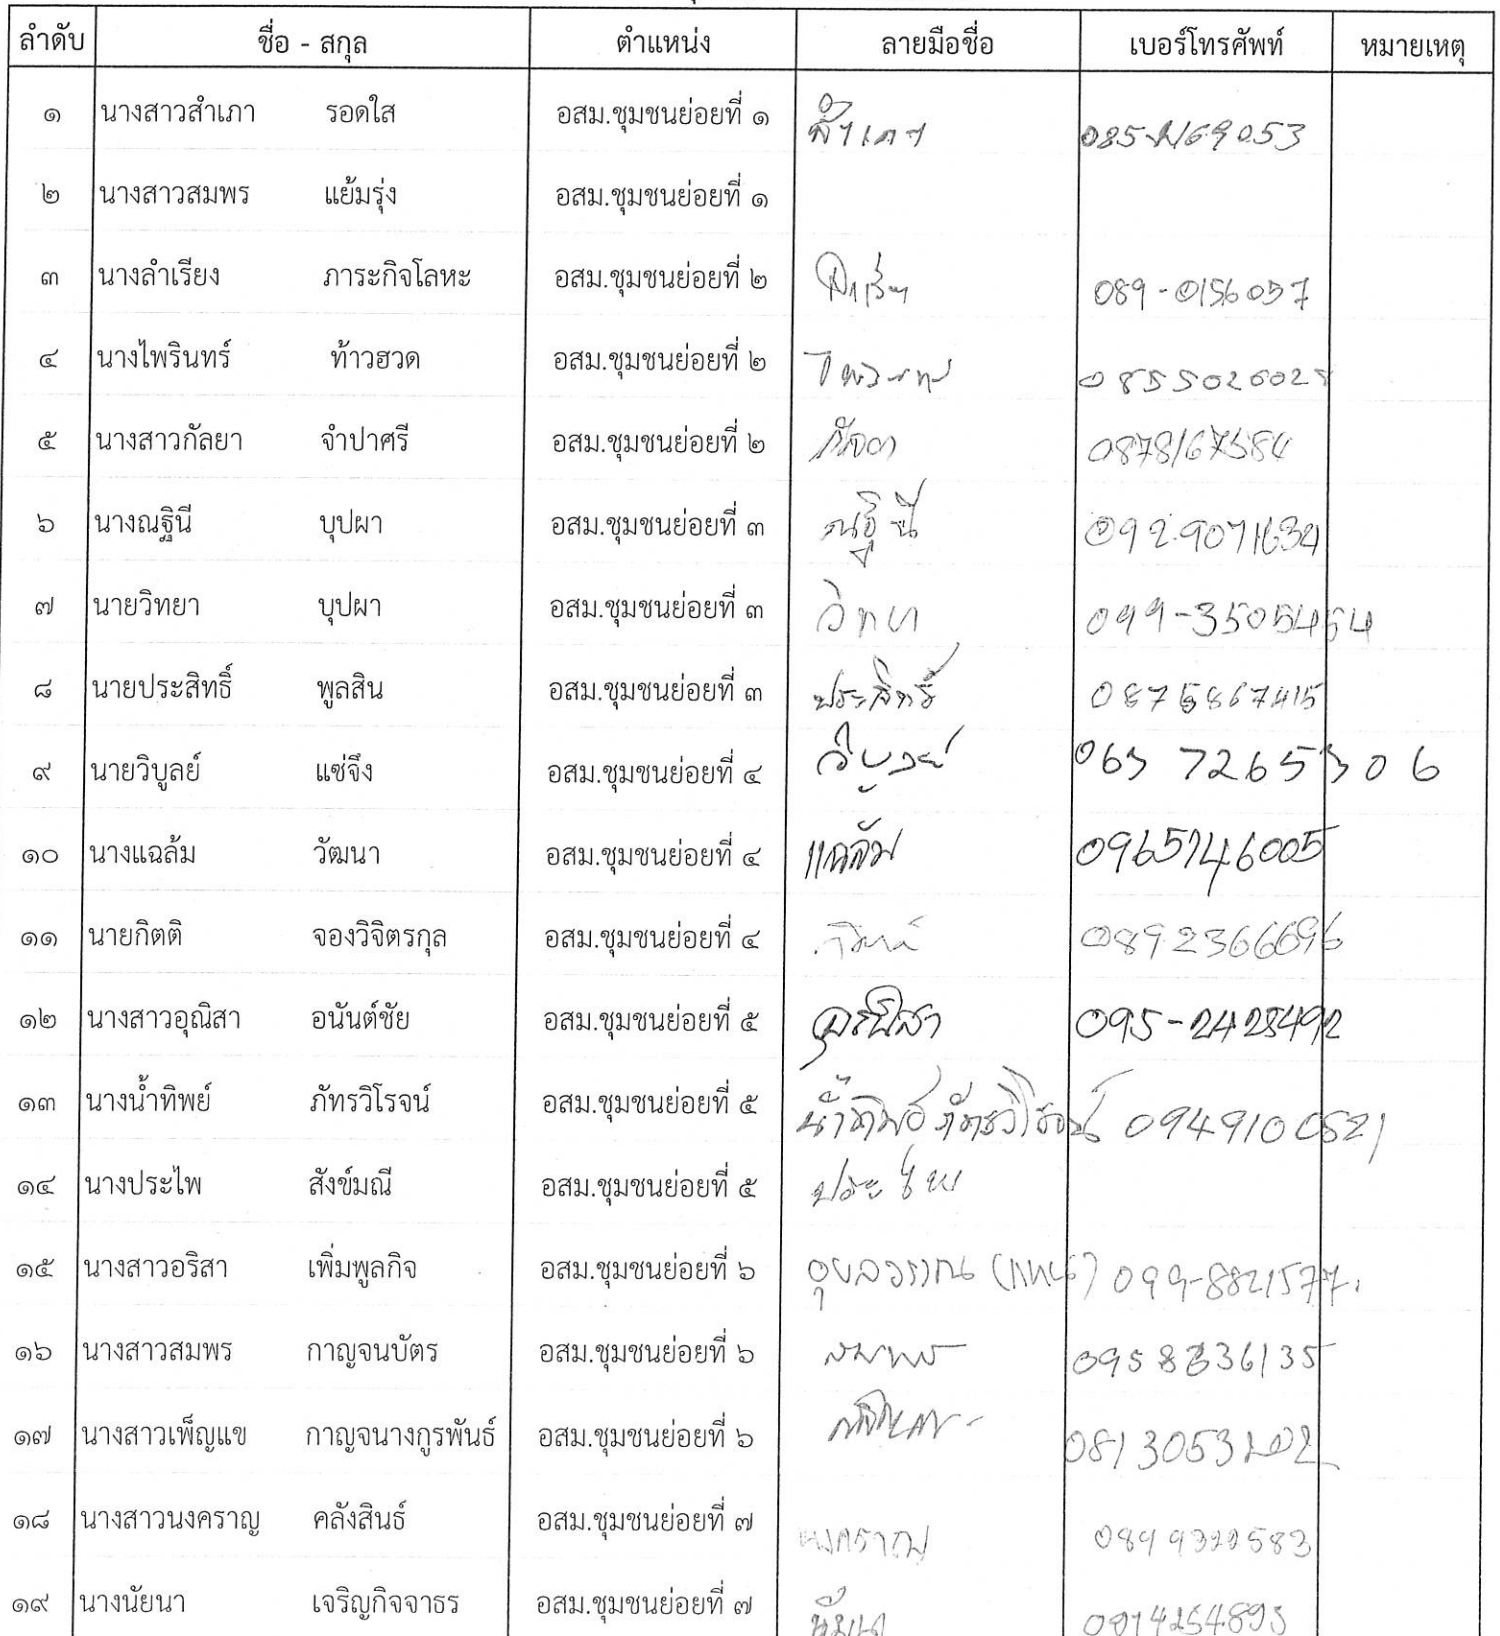 ลำดับ ชื่อ - สกุล ตำแหน่ง ลายมือชื่อ เบอร์โทรศัพท์ หมายเหตุ
๑ นางสาวสำเภา รอดใส อสม.ชุมชนย่อยที่ ๑ สำเภา
๒ นางสาวสมพร แย้มรุ่ง อสม.ชุมชนย่อยที่ ๑
๓ นางลำเรียง ภาระกิจโลหะ อสม.ชุมชนย่อยที่ ๒ 089-0156057
๔ นางไพรินทร์ ท้าวฮวด อสม.ชุมชนย่อยที่ ๒ 0855026028
๕ นางสาวกัลยา จำปาศรี อสม.ชุมชนย่อยที่ ๒ 0878167584
๖ นางณฐินี บุปผา อสม.ชุมชนย่อยที่ ๓ ณฐินี 092-9071634
๗ นายวิทยา บุปผา อสม.ชุมชนย่อยที่ ๓ วิทยา 099-3505454
๘ นายประสิทธิ์ พูลสิน อสม.ชุมชนย่อยที่ ๓ ประสิทธิ์ 0875867415
๙ นายวิบูลย์ แซ่จึง อสม.ชุมชนย่อยที่ ๔ วิบูลย์ 063 7265306
๑๐ นางแฉล้ม วัฒนา อสม.ชุมชนย่อยที่ ๔ แฉล้ม 0965746005
๑๑ นายกิตติ จองวิจิตรกุล อสม.ชุมชนย่อยที่ ๔ 0892366696
๑๒ นางสาวอุณิสา อนันต์ชัย อสม.ชุมชนย่อยที่ ๕ อุณิสา 095-2428492
๑๓ นางน้ำทิพย์ ภัทรวิโรจน์ อสม.ชุมชนย่อยที่ ๕ น้ำทิพย์ ภัทรวิโรจน์ 0949100521
๑๔ นางประไพ สังข์มณี อสม.ชุมชนย่อยที่ ๕ ประไพ
๑๕ นางสาวอริสา เพิ่มพูลกิจ อสม.ชุมชนย่อยที่ ๖ อุบลวรรณ (แทน) 099-8821577
๑๖ นางสาวสมพร กาญจนบัตร อสม.ชุมชนย่อยที่ ๖ สมพร 0958336135
๑๗ นางสาวเพ็ญแข กาญจนางกูรพันธ์ อสม.ชุมชนย่อยที่ ๖
๑๘ นางสาวนงคราญ คลังสินธ์ อสม.ชุมชนย่อยที่ ๗ นงคราญ
๑๙ นางนัยนา เจริญกิจจาธร อสม.ชุมชนย่อยที่ ๗ นัยนา